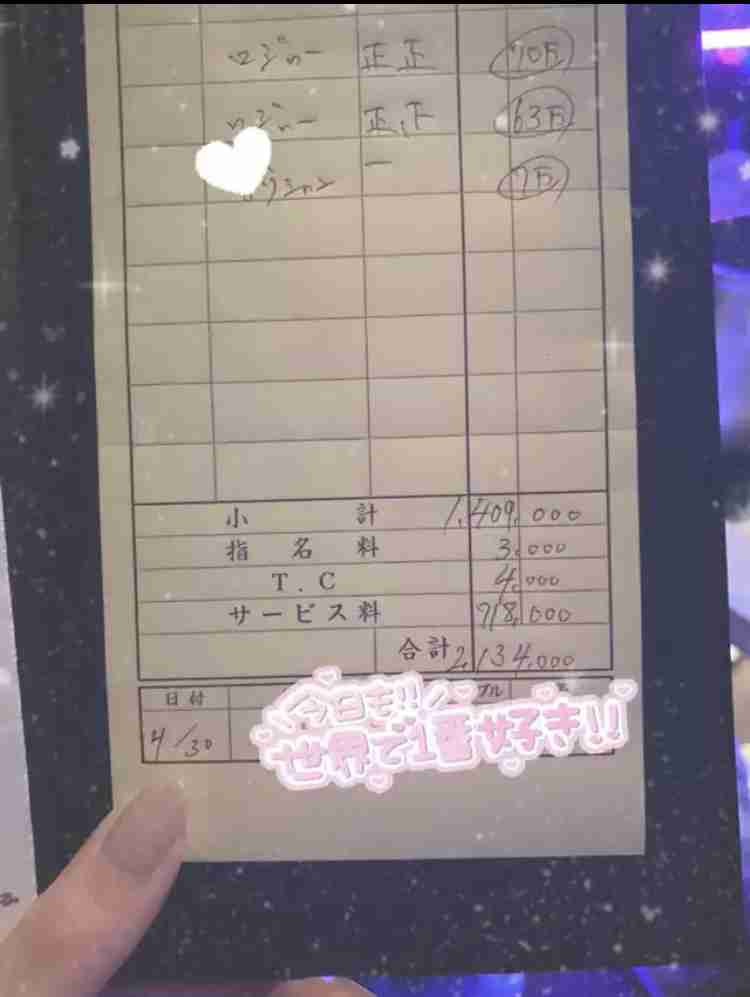 ロジャー 正正 70万
ロジャー 正下 63万
一 7万
小計 1,409,000
指名料 3,000
T.C 4,000
サービス料 718,000
合計 2,134,000
日付
4/30
今日も!!
世界で1番好き!!